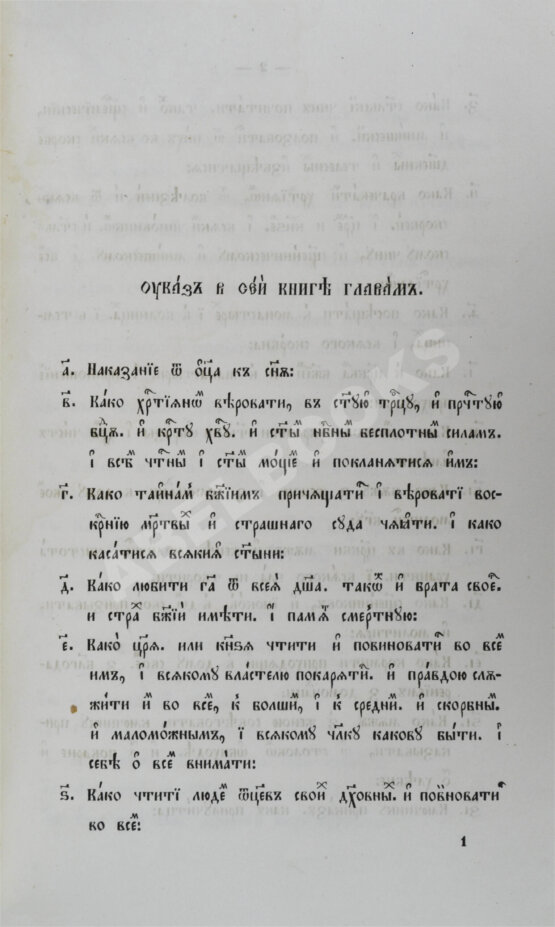 ОУКА́ЗЪ В СЕ́Й КНИГѢ ГЛАВА́МЪ.
а҃. Наказанїе ѿ оц҃а къ сн҃ꙋ:
в҃. Ка́ко хрⷭ҇тїѧнѡⷨ вѣ́ровати, въ ст҃ꙋю трⷪ҇цꙋ, и҆ прⷱ҇тꙋю
бц҃ꙋ. и҆ крⷭ҇тꙋ хв҃ꙋ. и҆ ст҃ыⷨ нбⷭ҇ныⷨ бесплотныⷨ силамъ.
і҆ всѣⷨ чтⷭ҇ныⷨ і҆ ст҃ыⷨ мо́щїеⷨ и҆ покланѧтисѧ и҆мъ:
г҃. Како та́йнамъ бж҃їимъ причѧщатиⷭ҇ і҆ вѣ́роватї вос-
крⷭ҇нїю мр҃твыⷯ и҆ страшнаго сꙋда чѧ́ѧти. і҆ како
касатисѧ всѧкиѧ ст҃ыни:
д҃. Ка́ко любити гⷭ҇а ѿ всеѧ̀ дш҃а. такоⷤ и҆ брата своеⷢ҇.
и҆ страⷯ бж҃їй имѣ́ти. і҆ памѧⷮ сме́ртнꙋю:
е҃. Како̀ цр҃ѧ. или кн҃зѧ чтити и҆ повиноватиⷭ҇ во всеⷨ
имъ, і҆ всѧкомꙋ властелю покарѧтиⷭ҇. и҆ пра́вдою слꙋ-
жити иⷨ во всеⷨ, к̾ болшиⷨ, і҆ к̾ среднїиⷨ. и҆ скорбныⷨ.
и҆ маломо́жнымъ, ї всѧкомꙋ члк҃ꙋ каковꙋ быти. і҆
себѣ̀ о҆ всеⷨ внимати:
ѕ҃. Ка́ко чтитї людеⷨ ѿце́въ своиⷯ дꙋхо́вныⷯ. и҆ повиноватиⷭ҇
ко всеⷨ:
1
ABELBOOKS